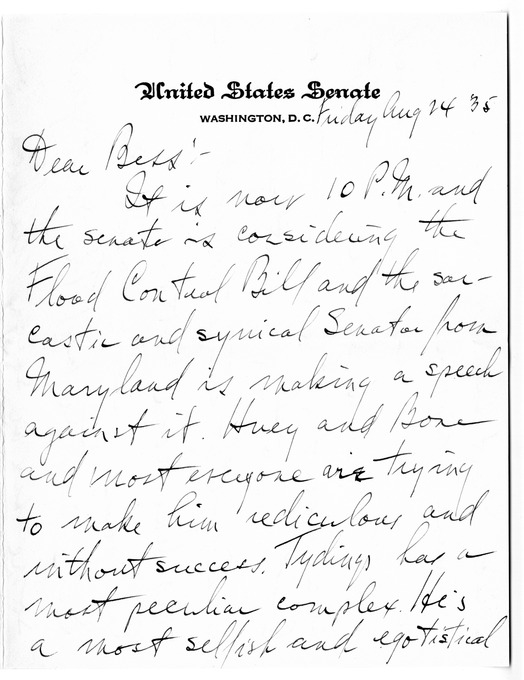 United States Senate
WASHINGTON, D. C. Friday Aug 24 '35
Dear Bess:-
It is now 10 P.M. and
the senate is considering the
Flood Control Bill and the sar-
castic and synical Senator from
Maryland is making a speech
against it. Huey and Bone
and most everyone are trying
to make him rediculous and
without success. Tydings has a
most peculiar complex. He's
a most selfish and egotistical